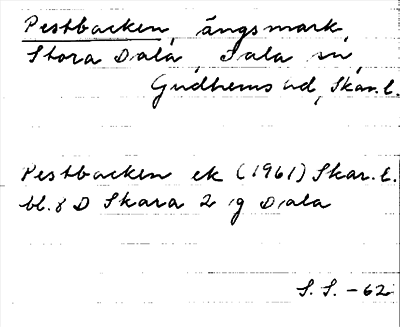 Pestbacken, ängsmark,
Stora Dala, Dala sn,
Gudhems hd, Skar. l.
Pestbacken ek (1961) Skar. l.
bl. 8 D Skara 2 g Dala
S. S. - 62